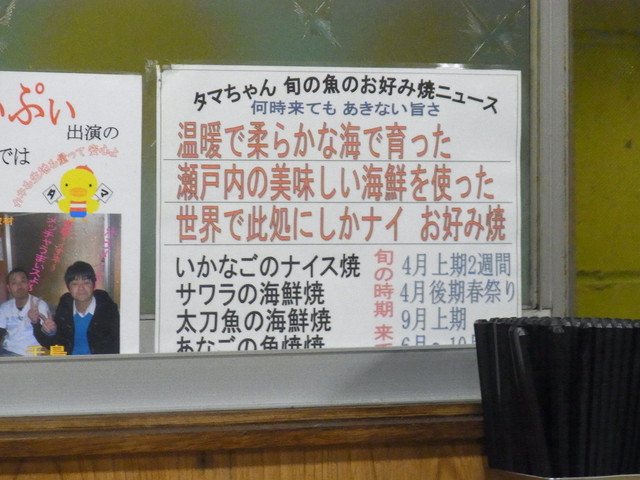 ぷい
出演の
では
タ マ
千鳥
タマちゃん 旬の魚のお好み焼ニュース
何時来ても あきない旨さ
温暖で柔らかな海で育った
瀬戸内の美味しい海鮮を使った
世界で此処にしかナイ お好み焼
いかなごのナイス焼 4月上期2週間
サワラの海鮮焼 4月後期春祭り
太刀魚の海鮮焼 9月上期
あなごの魚焼焼 6月~10月
旬の時期 来